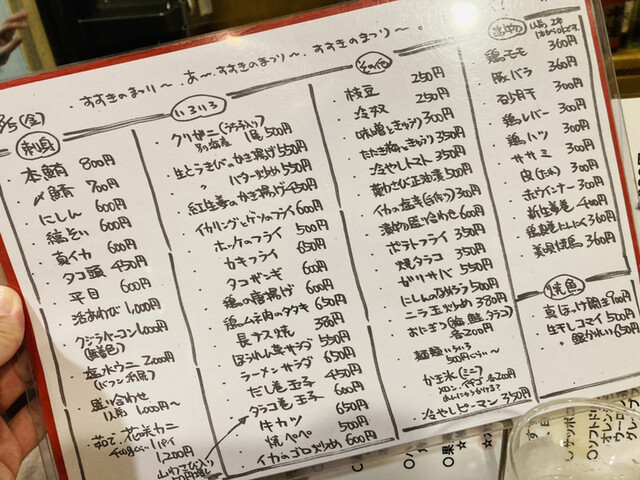 ・すすきのまつり〜、あ〜すすきのまつり、すすきのまつり〜。
8/5(金)
刺身
・本鮪 800円
・〆鯖 700円
・にしん 600円
・真イカ 600円
・タコ頭 450円
・平目 600円
・活あわび 1,000円
・クジラベーコン 1,000円
・塩水ウニ 2,000円
・盛り合わせ
1人前 1,000円〜
・茹で花咲カニ
1,200円
いろいろ
・クリガニ
1尾 500円
・生とうきびのかき揚げ 550円
・〃 バター炒め 550円
・紅生姜のかき揚げ 450円
・イカリングとゲソのフライ 600円
・ホッケのフライ 500円
・カキフライ 650円
・タコザンギ 600円
・鶏の唐揚げ 600円
・鶏ムネ肉のタタキ 650円
・長ナス焼 380円
・ほうれん草サラダ 550円
・ラーメンサラダ 650円
・だし巻玉子 600円
・タラコ巻玉子 650円
・牛カツ
・焼ペペ 500円
・イカのゴロ炒め 600円
山わさび入り
その他
・枝豆 250円
・冷奴 250円
・味噌きゅうり 300円
・たたき梅きゅうり 350円
・冷やしトマト 350円
・イカの塩辛(自作り) 300円
・漬物盛り合わせ 600円
・ポテトフライ 350円
・焼タラコ 350円
・ガリサバ 550円
・にしんのなめろう 500円
・ニラ玉炒め 380円
・おにぎり(梅、鮭、タラコ)
各200円
・麺類いろいろ
500円ぐらい〜
・かき氷(ミニ)
メロン、イチゴ 各200円
・冷やしピーマン 350円
串やき
・鶏モモ 360円
・豚バラ 360円
・砂肝 300円
・鶏レバー 300円
・鶏ハツ 300円
・ササミ 300円
・皮(たれ) 300円
・赤ウインナー 300円
・新生姜巻 400円
・美唄焼鳥 360円
焼魚
・真ほっけ開き 900円
・生干しコマイ 500円
・銀がれい 650円